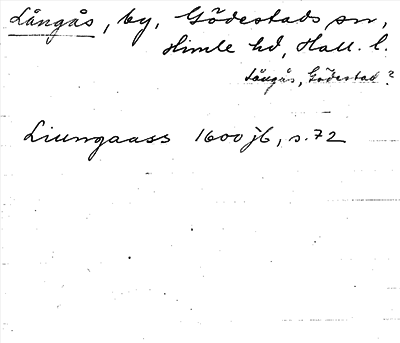 Långås, by, Gödestads sn,
Himle hd, Hall. l.
Långås, Gödestad?
Liungaass 1600 jb, s. 72